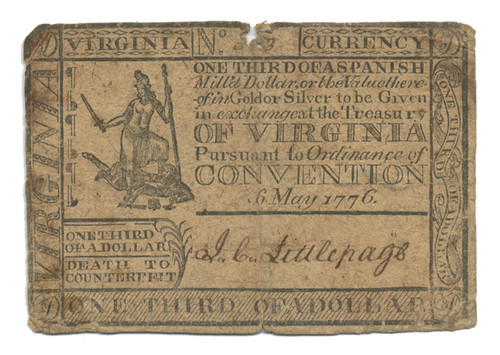 VIRGINIA No. CURRENCY
ONE THIRD OF A SPANISH
Mill'd Dollar, or the Value there
of in Gold or Silver to be Given
in exchange at the Treasury
OF VIRGINIA
Pursuant to Ordinance of
CONVENTION
6 May 1776.
VIRGINIA
ONE THIRD
OF A DOLLAR
DEATH TO
COUNTERFEIT
J. C. Littlepage
ONE THIRD OF A DOLLAR
ONE THIRD OF A DOLLAR